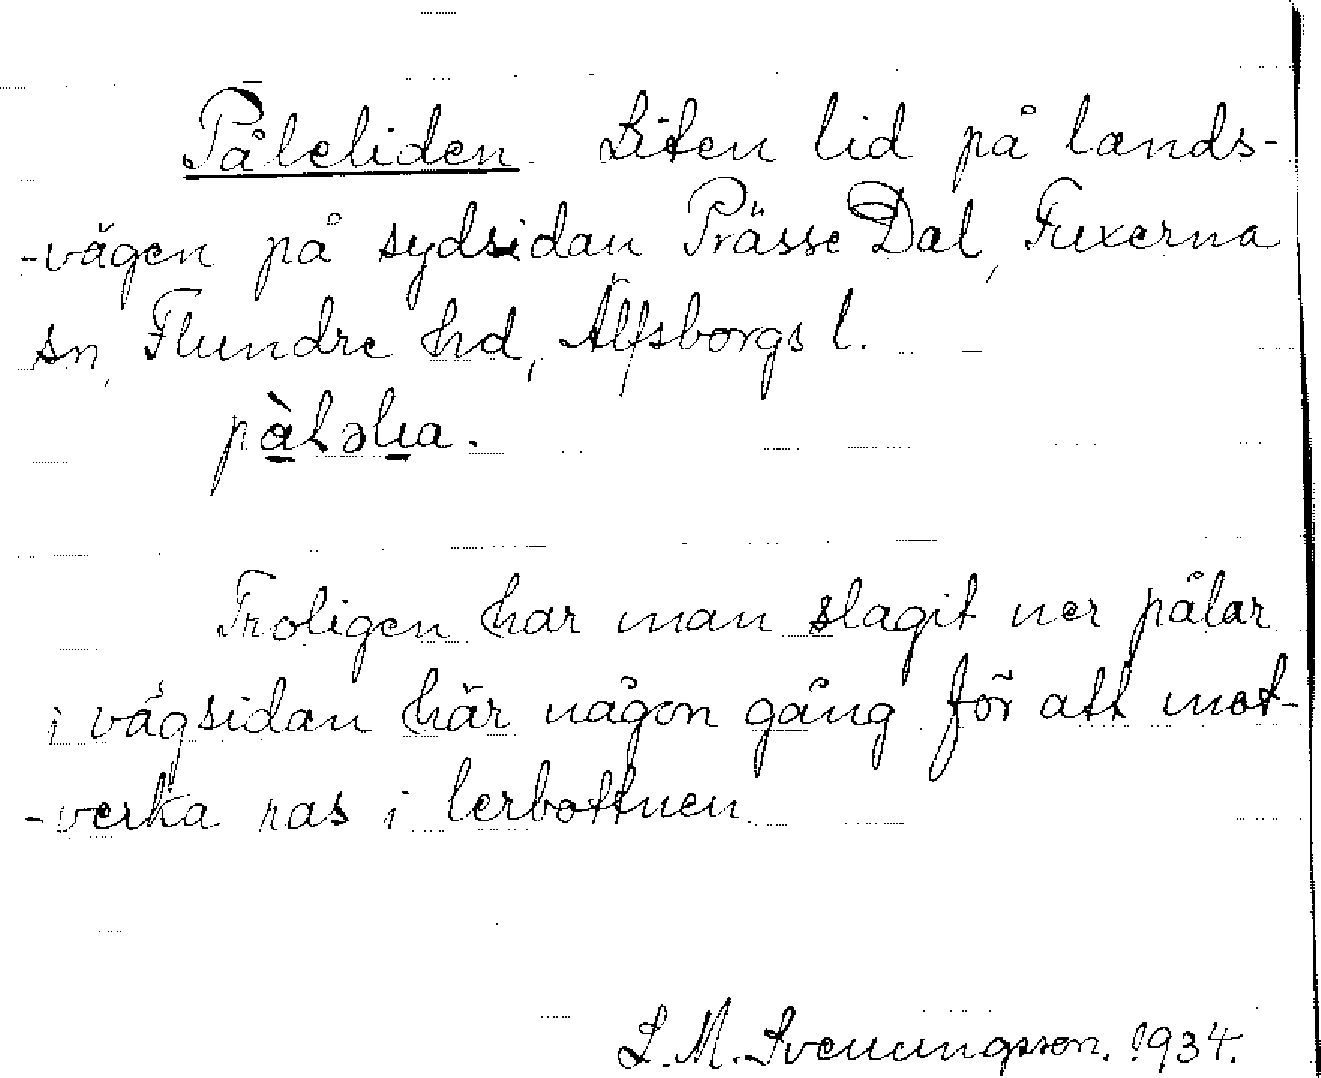 Påleliden. Liten lid på lands-
-vägen på sydsidan Prässe Dal, Fuxerna
sn, Flundre hd, Älfsborgs l.
pàLəlıa.
Troligen har man slagit ner pålar
i vägsidan här någon gång för att mot-
-verka ras i lerbottnen
L. M. Svenungsson. 1934.